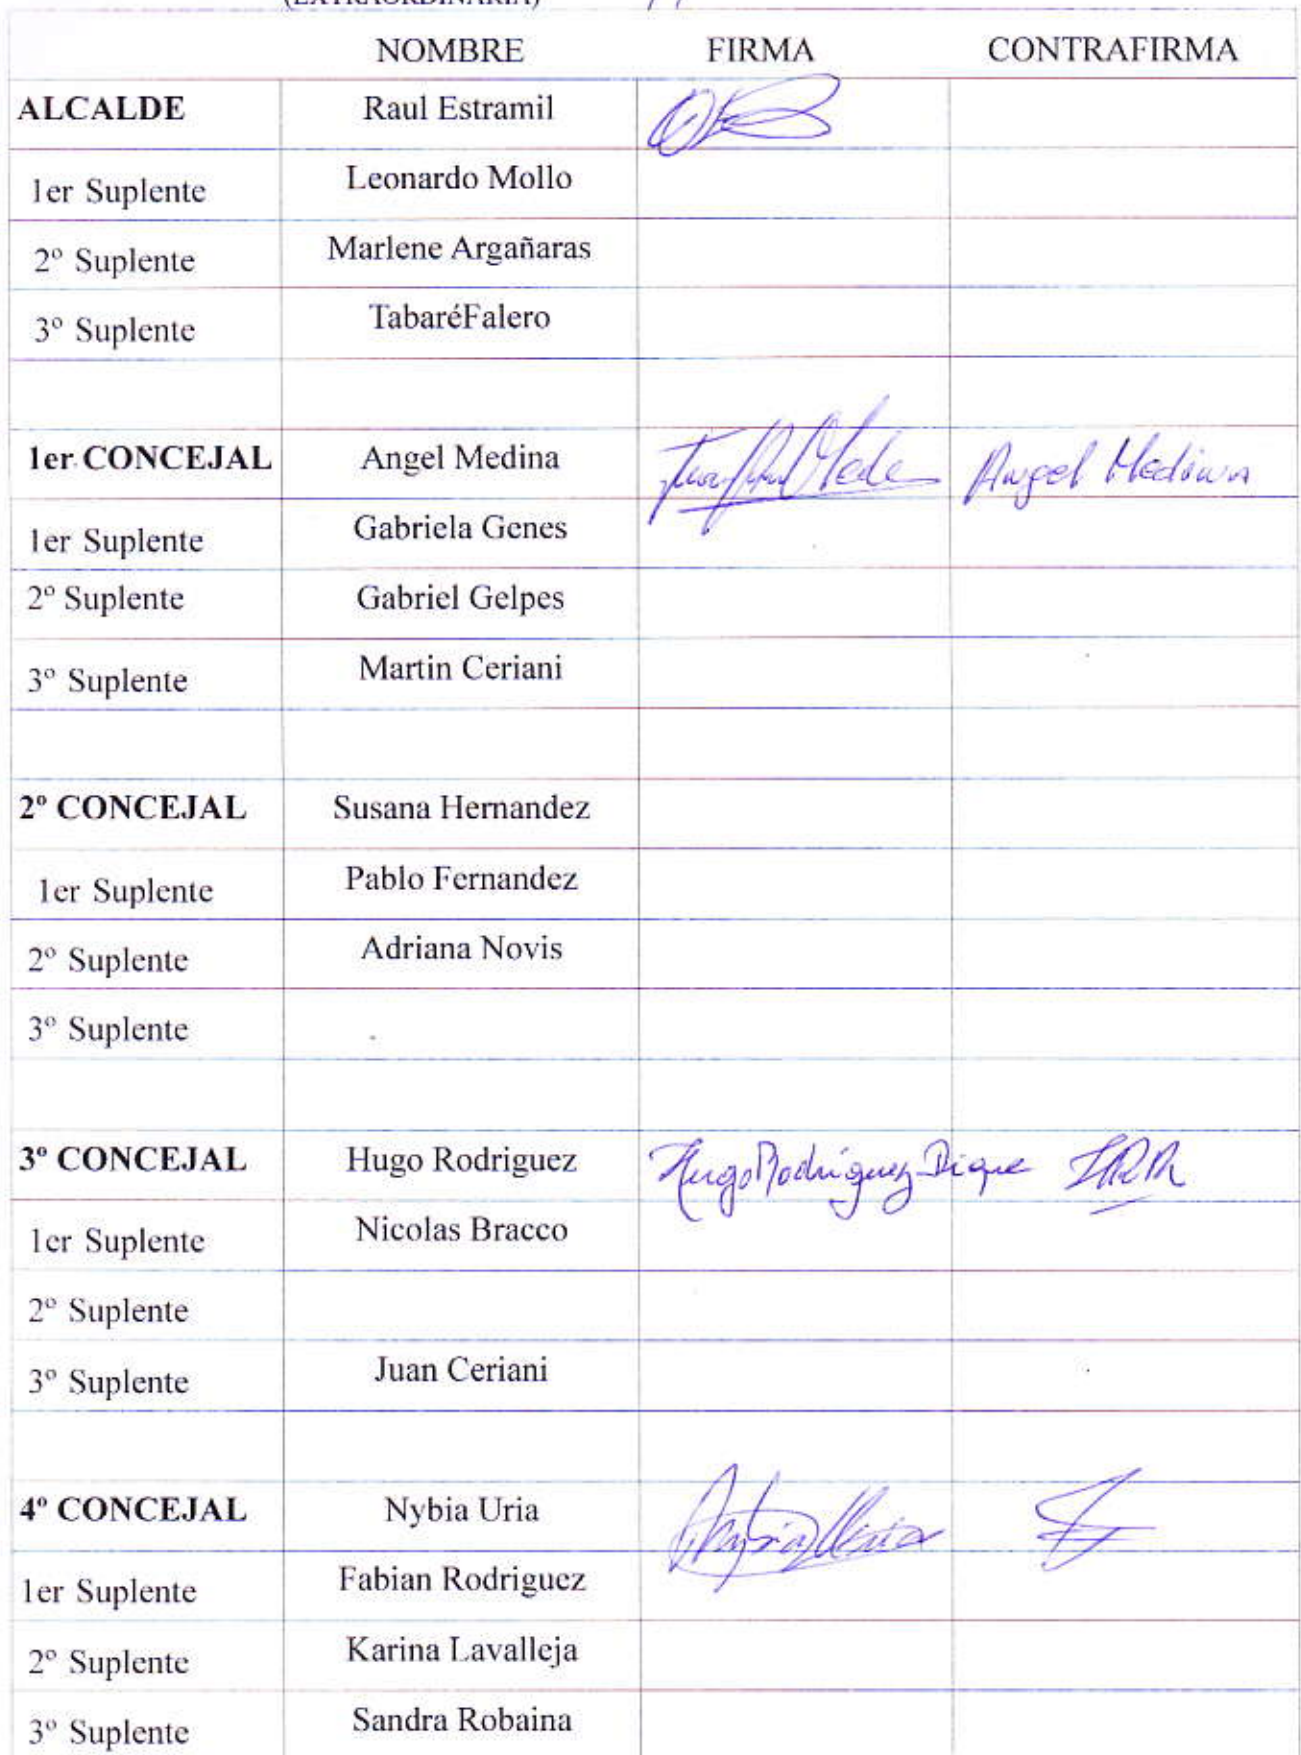 (EXTRAORDINARIA)
NOMBRE FIRMA CONTRAFIRMA
ALCALDE Raul Estramil
1er Suplente Leonardo Mollo
2º Suplente Marlene Argañaras
3º Suplente TabaréFalero
1er.CONCEJAL Angel Medina Angel Medina
1er Suplente Gabriela Genes
2º Suplente Gabriel Gelpes
3º Suplente Martin Ceriani
2º CONCEJAL Susana Hernandez
1er Suplente Pablo Fernandez
2º Suplente Adriana Novis
3º Suplente
3º CONCEJAL Hugo Rodriguez Hugo Rodriguez Dique
1er Suplente Nicolas Bracco
2º Suplente
3º Suplente Juan Ceriani
4º CONCEJAL Nybia Uria Nybia Uria
1er Suplente Fabian Rodriguez
2º Suplente Karina Lavalleja
3º Suplente Sandra Robaina